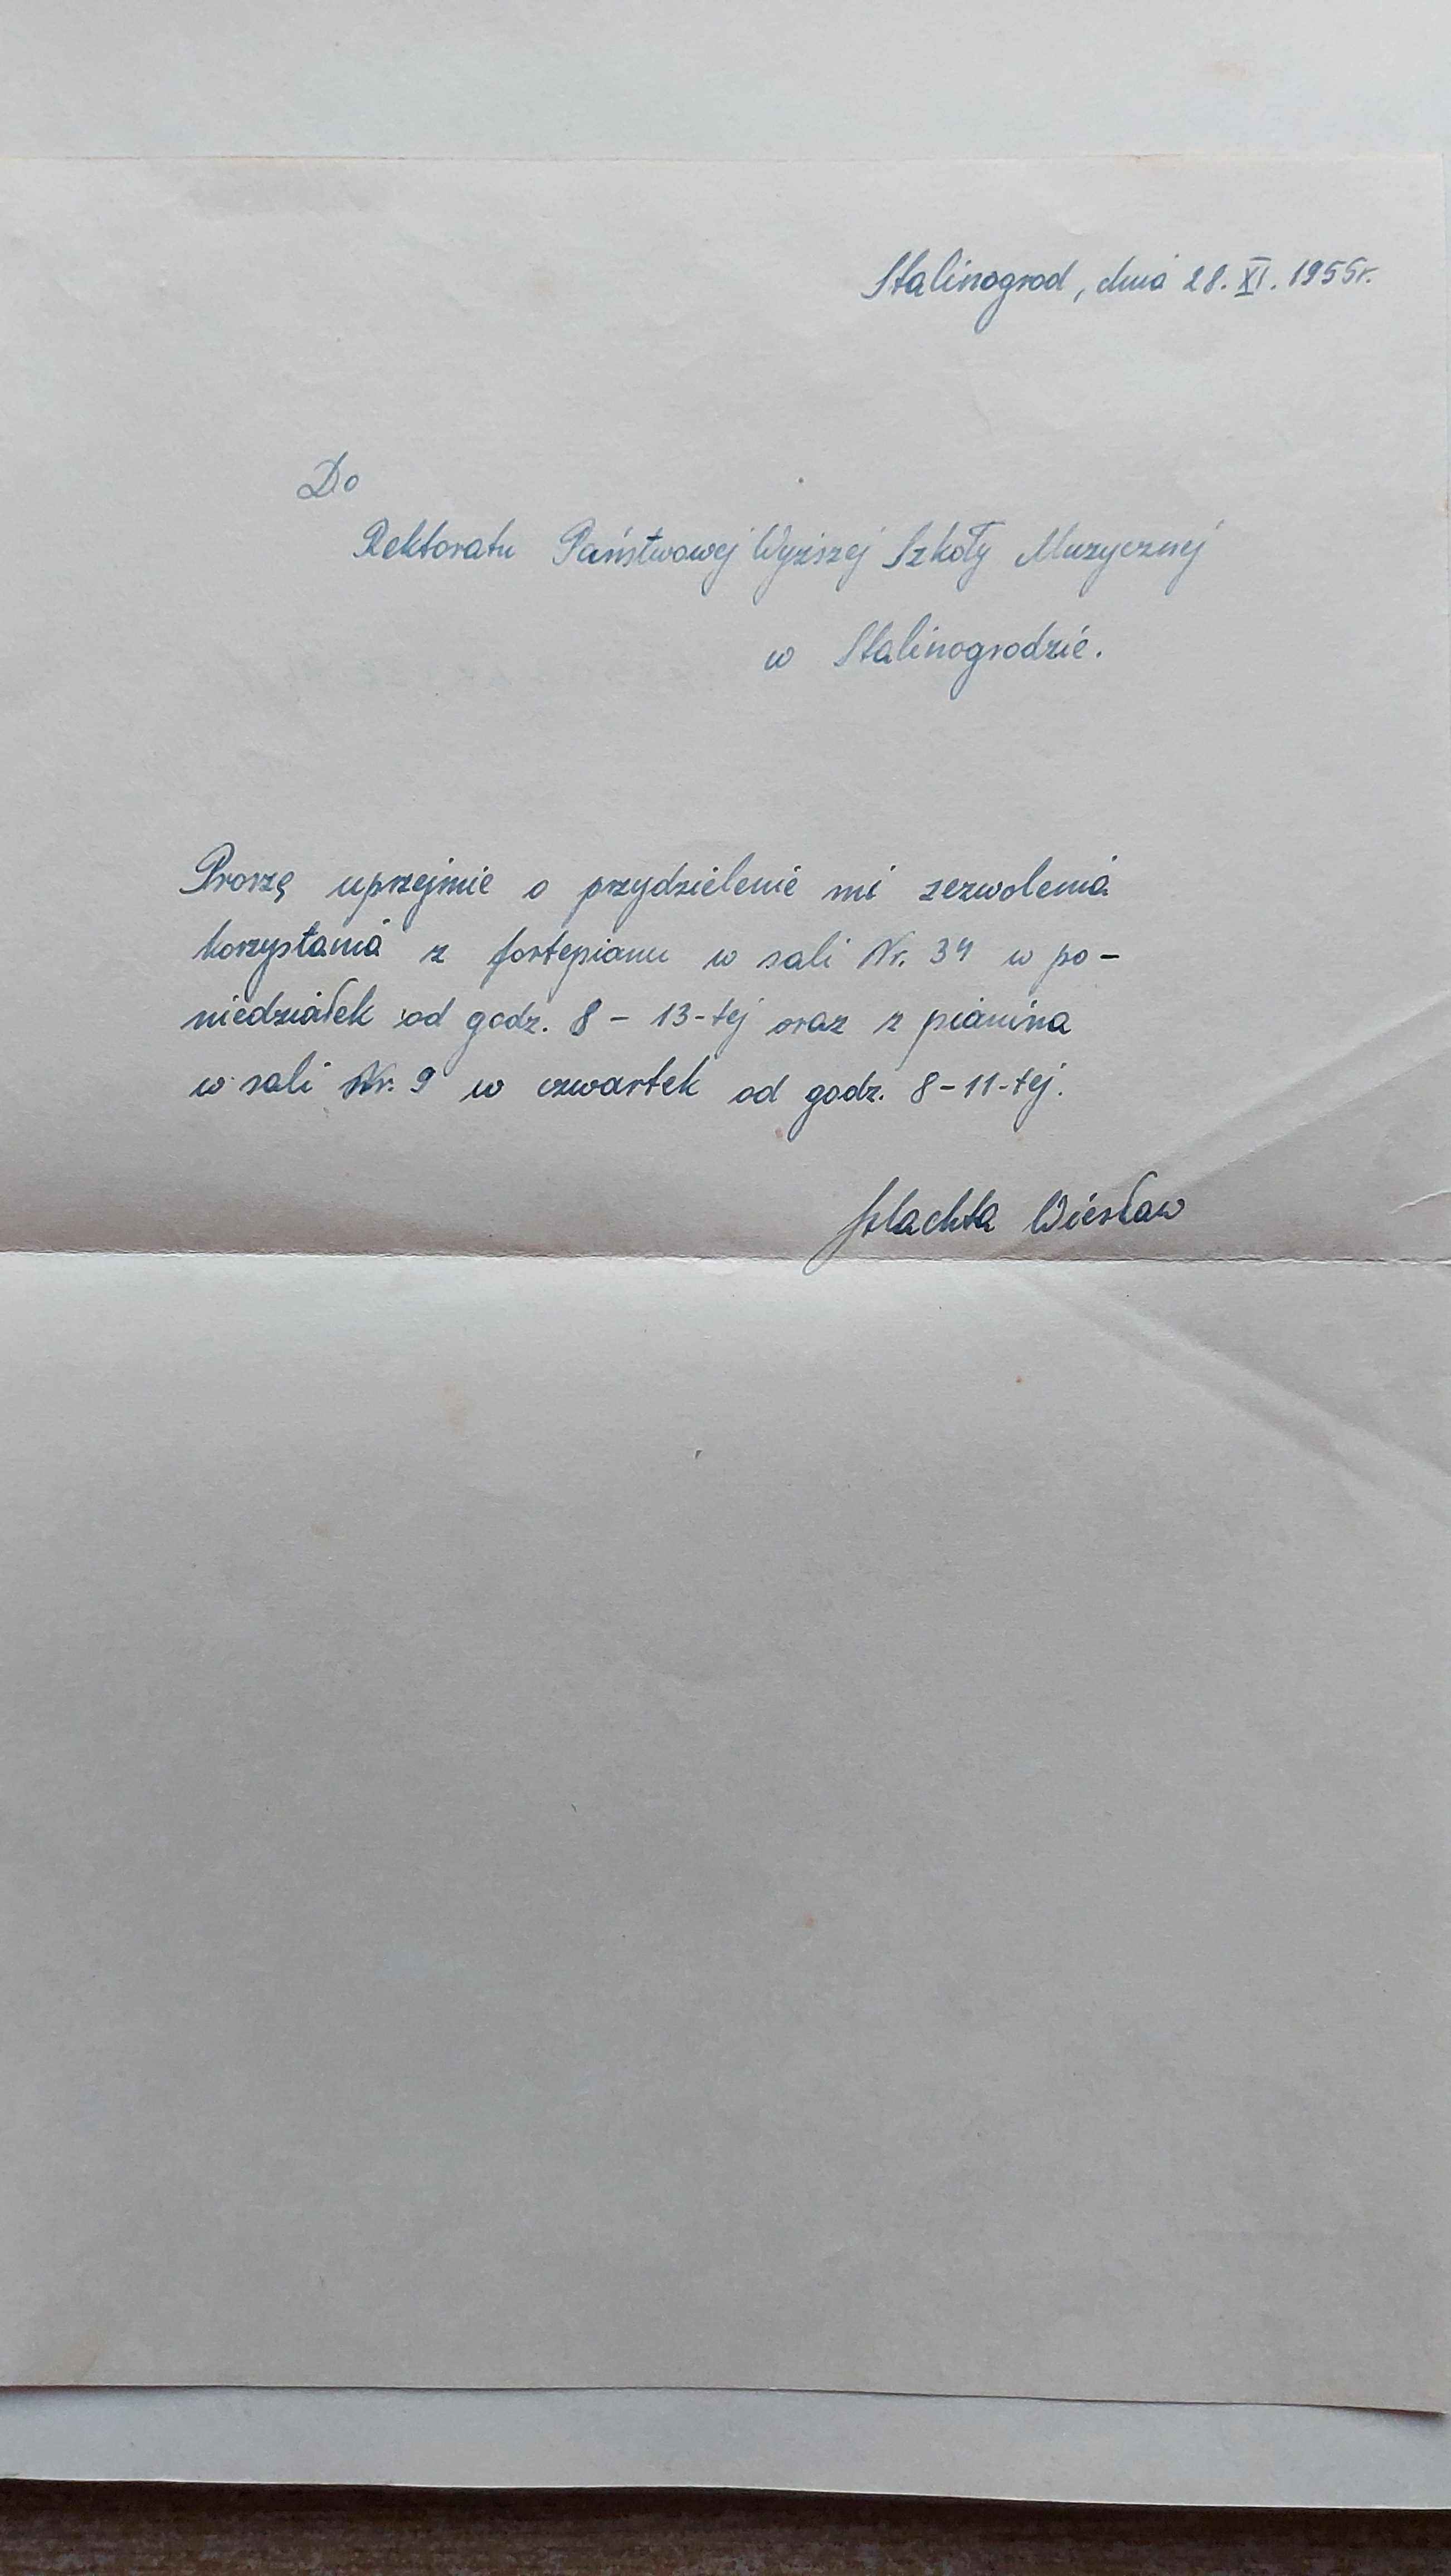 Stalinogrod, dnia 28. XI. 1955r.
Do
Rektoratu Państwowej Wyższej Szkoły Muzycznej
w Stalinogrodzie.
Proszę uprzejmie o przydzielenie mi zezwolenia
korzystania z fortepianu w sali Nr. 34 w po-
niedziałek od godz. 8 - 13-tej oraz z pianina
w sali Nr. 9 w czwartek od godz. 8-11-tej.
Szlachta Wiesław